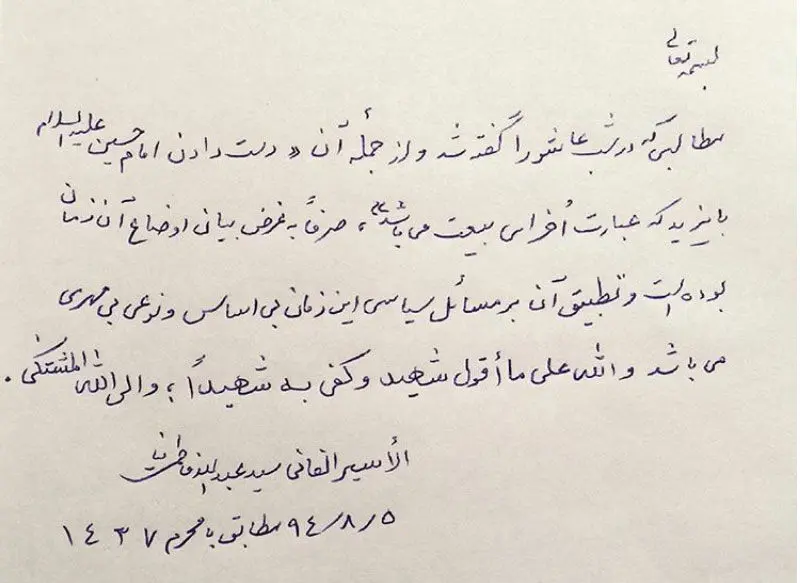 بسمه تعالی
مطالبی که در شب عاشورا گفته شد و از جمله آن « دست دادن امام حسین علیه السلام
با یزید که عبارت اُخرای بیعت می باشد»، صرفاً به غرض بیان اوضاع آن زمان
بوده است و تطبیق آن بر مسائل سیاسی این زمان بی اساس و نوعی بی مهری
می باشد والله علی ما أقول شهید وکفی به شهیداً، والی الله المشتکی.
الأسیر الفانی سید عبدالله فاطمی نیا
۹٤/۸/٥ مطابق با محرم ۱٤۳۷